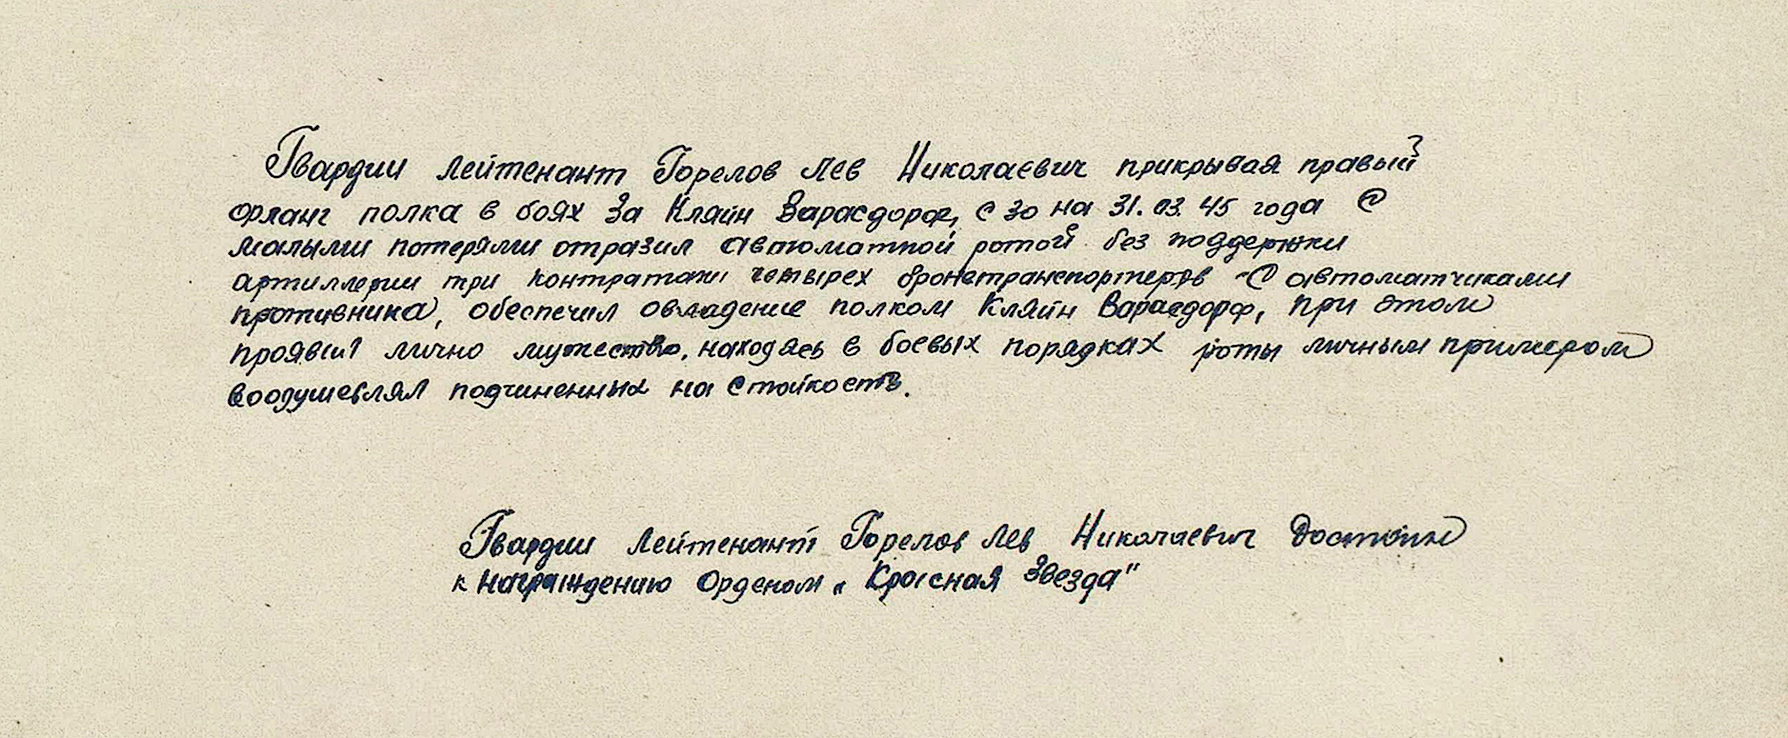 Гвардии лейтенант Горелов Лев Николаевич прикрывая правый
фланг полка в боях за Кляйн Варасдорф, с 30 на 31.03.45 года с
малыми потерями отразил автоматной ротой без поддержки
артиллерии три контратаки четырех бронетранспортеров с автоматчиками
противника, обеспечил овладение полком Кляйн Варасдорф, при этом
проявил лично мужество, находясь в боевых порядках роты личным примером
воодушевлял подчиненных на стойкость.
Гвардии лейтенант Горелов Лев Николаевич достоин
к награждению Орденом „Красная Звезда"